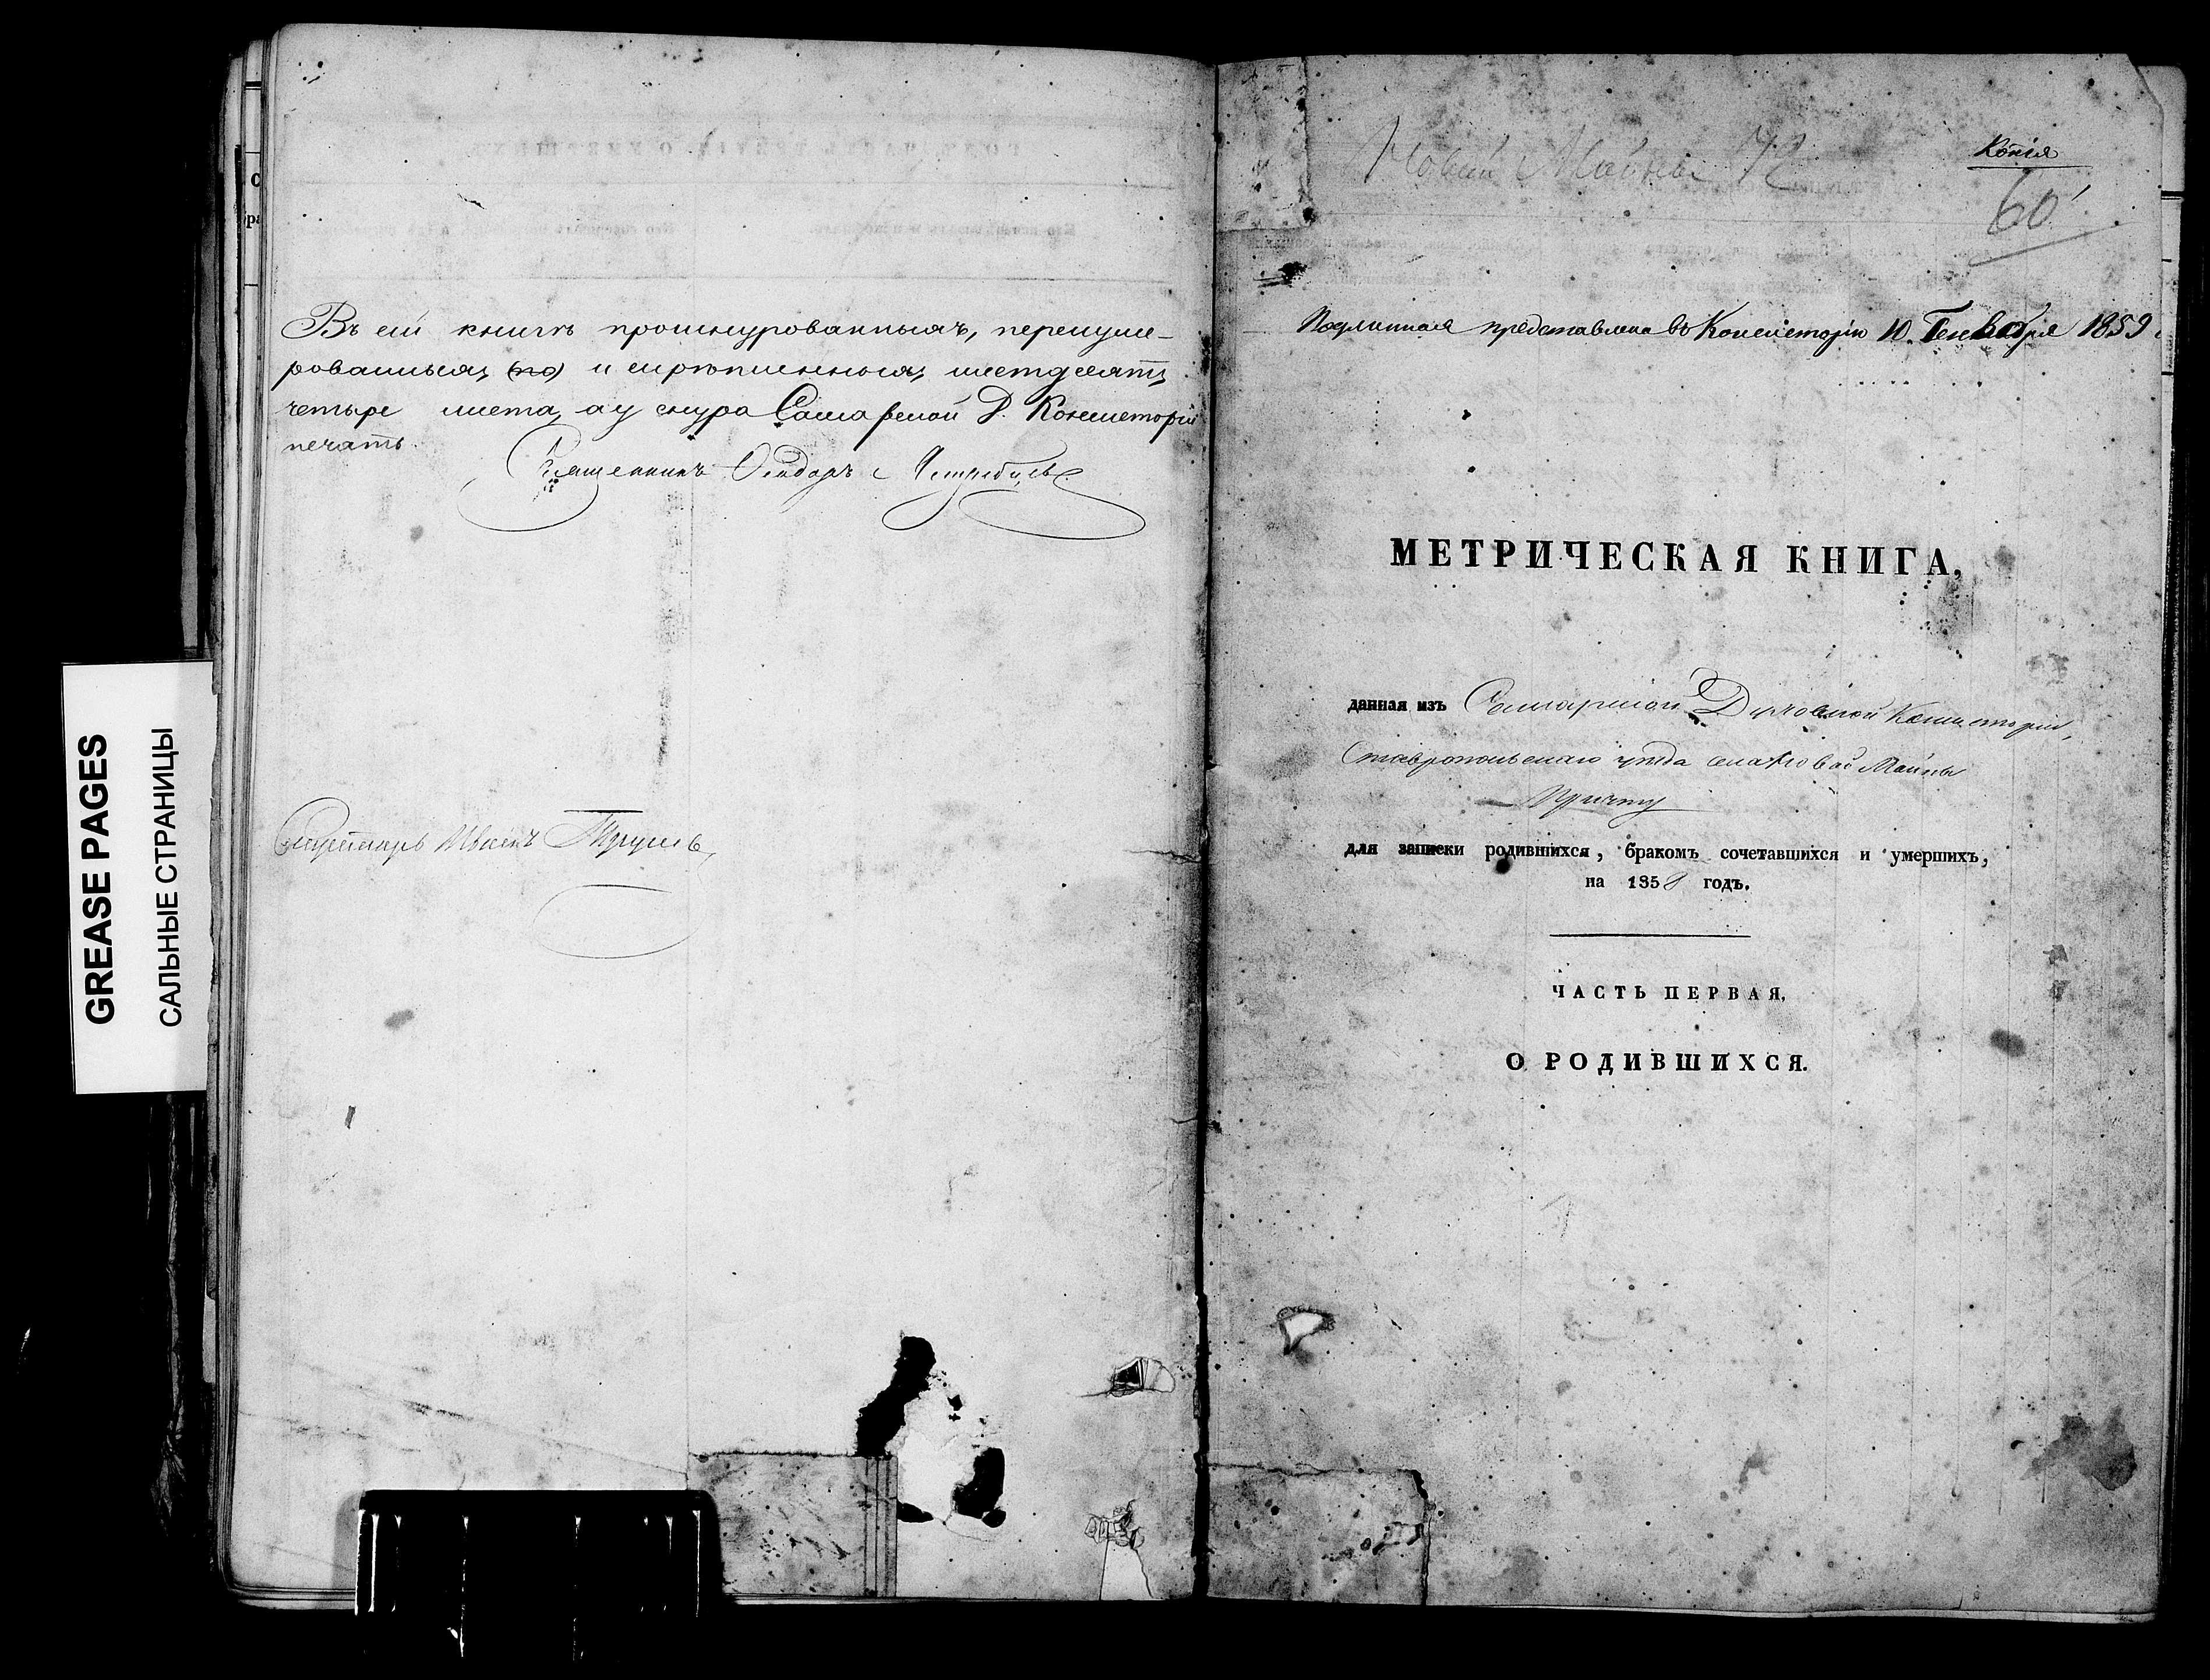 GREASE PAGES
САЛЬНЫЕ СТРАНИЦЫ
Въ сей книгѣ прошнурованныхъ, перенуме-
рованныхъ (по) и скрѣпленныхъ шестдесятъ
четыре листа, а у снура Самарской Д. Консисторіи
печать.
Священникъ Ѳеодоръ
Секретарь Иванъ
Новой Майны 72
Копія
60
Подлинная представлена въ Консисторію 10. Генваря 1859
МЕТРИЧЕСКАЯ КНИГА,
данная изъ Самарской Духовной Консисторіи,
Ставропольскаго уѣзда села Новой Майны
Причту
для записки родившихся, бракомъ сочетавшихся и умершихъ,
на 1858 годъ.
ЧАСТЬ ПЕРВАЯ,
О РОДИВШИХСЯ.